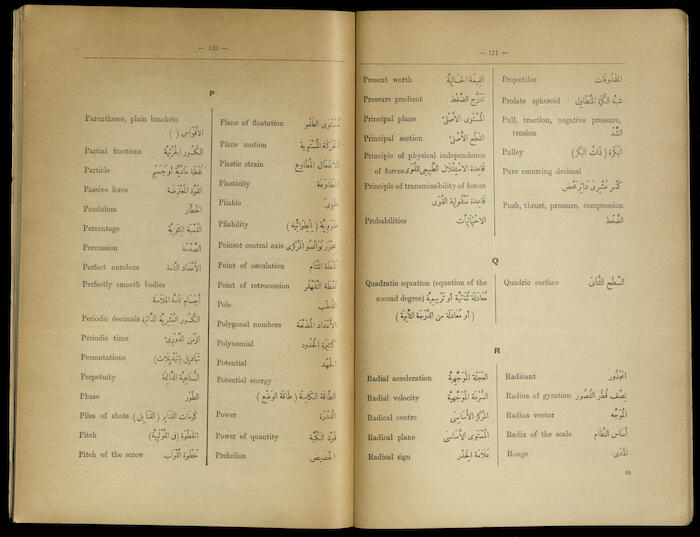 — 120 —
P
Parentheses, plain brackets
الأقواس ( )
Partial fractions الكسور الجزئية
Particle نقطة مادية أو جسيم
Passive force القوة المعترضة
Pendulum الخطار
Percentage النسبة المئوية
Percussion الصدمة
Perfect numbers الأعداد التامة
Perfectly smooth bodies
أجسام تامة الملاسة
Periodic decimals الكسور العشرية الدائرة
Periodic time الزمن الدورى
Permutations تباديل (تبديلات)
Perpetuity السناهية الدائمة
Phase الطور
Piles of shots كومات القنابر (القنابل)
Pitch الخطوة (فى القولبية)
Pitch of the screw خطوة القولب
Plane of floatation مستوى الطفو
Plane motion الحركة المستوية
Plastic strain الانفعال المطاوع
Plasticity المطاوعة
Pliable طوى
Pliability طروية (انطوائية)
Poinsot central axis محور بوانسو المركزى
Point of osculation نقطة التثام
Point of retrocession نقطة التقهقر
Pole القطب
Polygonal numbers الأعداد المضلعة
Polynomial كثيرة الحدود
Potential الجهد
Potential energy
الطاقة الكامنة (طاقة الوضع)
Power القدرة
Power of quantity قوة الكمية
Prehelion الحضيض
— 121 —
Present worth القيمة الحالية
Pressure gradient تدرج الضغط
Principal plane المستوى الأصلى
Principal section القطع الأصلى
Principle of physical independence
of forces قاعدة الاستقلال الطبيعى للقوى
Principle of transmissibility of forces
قاعدة منقولية القوى
Probabilities الاحتماليات
Projectiles المقذوفات
Prolate spheroid شبه الكرة المتطاول
Pull, traction, negative pressure,
tension الشد
Pulley البكرة (ذات البكر)
Pure recurring decimal
كسر عشرى دائر محض
Push, thrust, pressure, compression
الضغط
Q
Quadratic equation (equation of the
second degree) معادلة ثنائية أو تربيعية
(أو معادلة من الدرجة الثانية)
Quadric surface السطح الثنائى
R
Radial acceleration العجلة الموجهية
Radial velocity السرعة الموجهية
Radical centre المركز الأساسى
Radiral plane المستوى الأساسى
Radical sign علامة الجذر
Radicant المجذور
Radius of gyration نصف قطر القصور
Radius vector الموجه
Radix of the scale أساس النظام
Range المدى
10